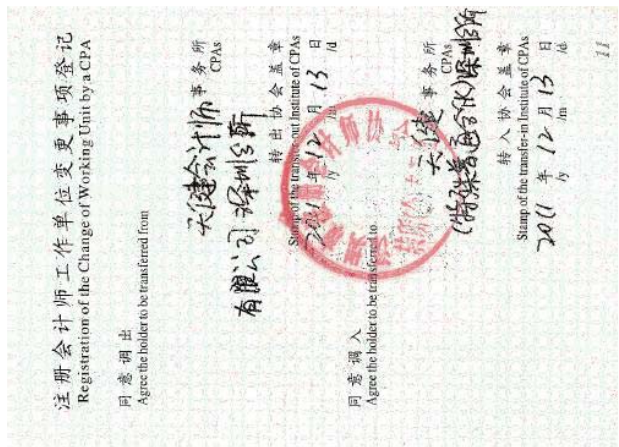 注册会计师工作单位变更事项登记
Registration of the Change of Working Unit by a CPA
同意调出
Agree the holder to be transferred from
天健会计师 事务所
CPAs
有限公司深圳分所
转出协会盖章
Stamp of the transfer-out Institute of CPAs
2011 年 12 月 13 日
/y /m /d
同意调入
Agree the holder to be transferred to
天健 事务所
CPAs
(特殊普通合伙)深圳分所
转入协会盖章
Stamp of the transfer-in Institute of CPAs
2011 年 12 月 13 日
/y /m /d
11